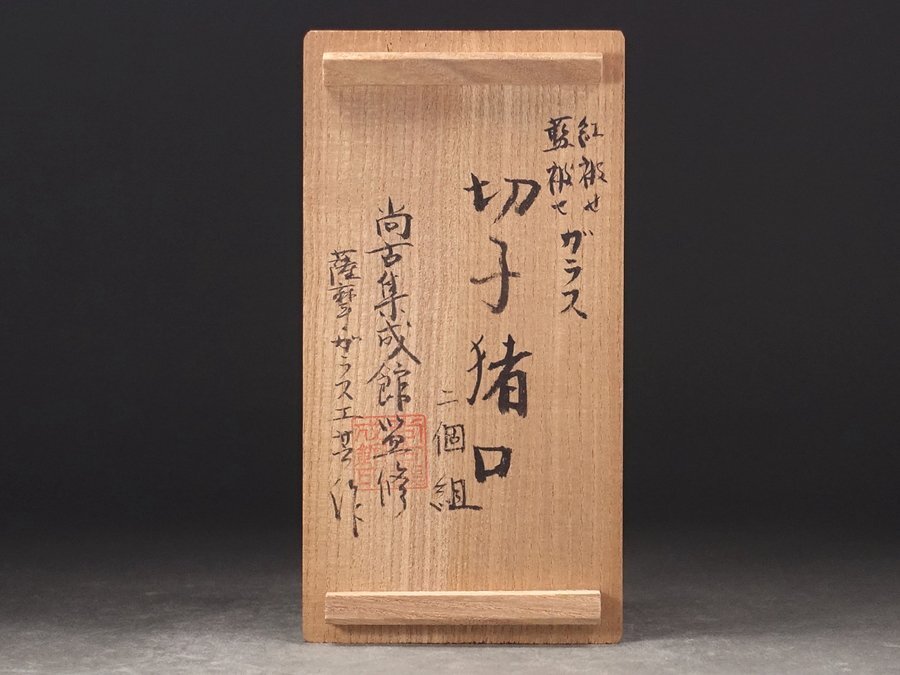 紅被せ
藍被せ
ガラス
切子猪口
二個組
尚古集成館監修
薩摩ガラス工芸作